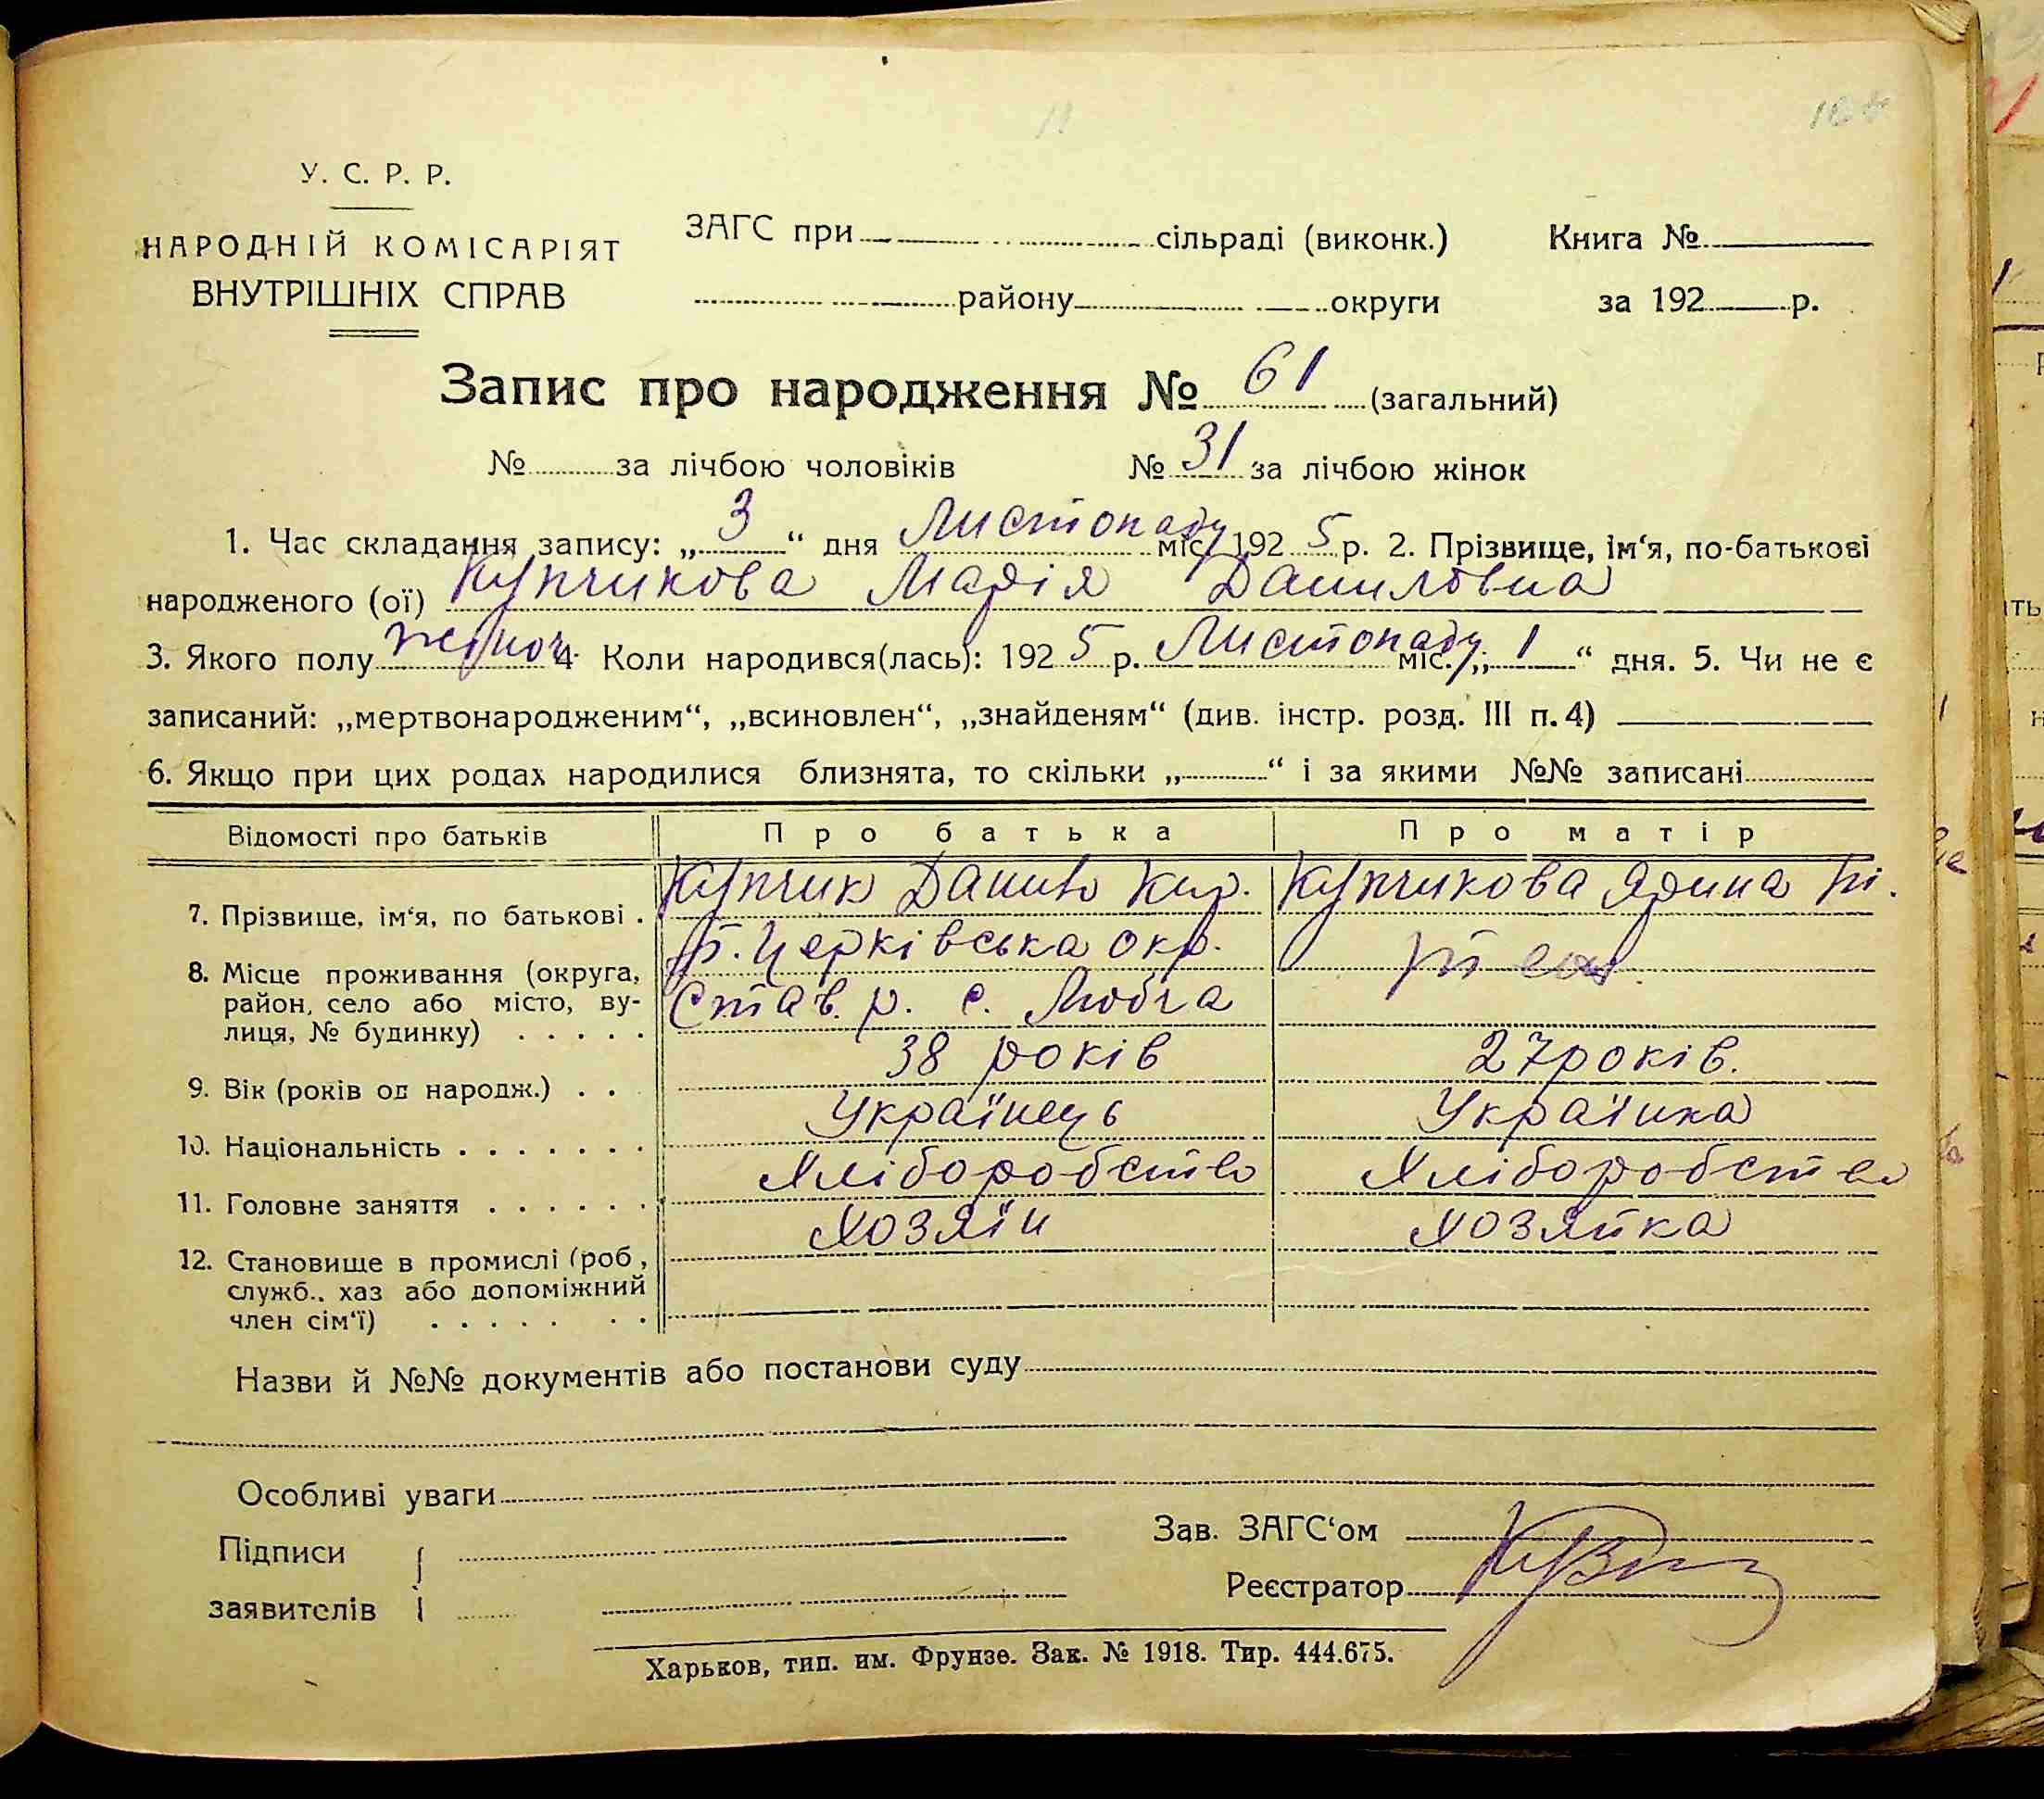 У. С. Р. Р.
НАРОДНІЙ КОМІСАРІЯТ
ВНУТРІШНІХ СПРАВ
ЗАГС при сільраді (виконк.)
району округи
Книга №
за 192 р.
Запис про народження № 61 (загальний)
№ за лічбою чоловіків № 31 за лічбою жінок
1. Час складання запису: „3“ дня Листопаду міс. 1925 р. 2. Прізвище, ім‘я, по-батькові
народженого (ої) Купчикова Марія Даниловна
3. Якого полу жіноч. 4 Коли народився(лась): 1925 р. Листопаду міс. „1“ дня. 5. Чи не є
записаний: „мертвонародженим“, „всиновлен“, „знайденям“ (див. інстр. розд. III п. 4)
6. Якщо при цих родах народилися близнята, то скільки „ “ і за якими №№ записані
Відомості про батьків Про батька Про матір
7. Прізвище, ім‘я, по батькові . Купчик Данило Кир. Купчикова Ярина
8. Місце проживання (округа, район, село або місто, вулиця, № будинку) . . . . .
Б. Церківська окр.
Став. р. с. Любча
9. Вік (років од народж.) . . 38 років 27 років.
10. Національність . . . . . . . Українець Українка
11. Головне заняття . . . . . . Хліборобство Хліборобство
12. Становище в промислі (роб, служб., хаз або допоміжний член сім‘ї) . . . . . . . Хозяїн Хозяйка
Назви й №№ документів або постанови суду
Особливі уваги
Підписи
заявителів
Зав. ЗАГС‘ом
Реєстратор
Харьков, тип. им. Фрунзе. Зак. № 1918. Тир. 444.675.